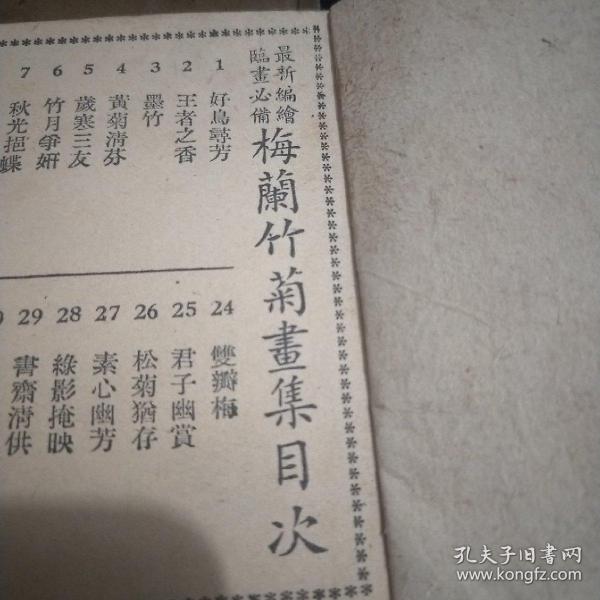 最新編繪
臨畫必備
梅蘭竹菊畫集目次
1 好鳥尋芳
2 王者之香
3 墨竹
4 黃菊清芬
5 歲寒三友
6 竹月爭妍
7 秋光挹蝶
24 雙瓣梅
25 君子幽賞
26 松菊猶存
27 素心幽芳
28 綠影掩映
29 書齋清供
孔夫子旧书网
www.kongfz.com